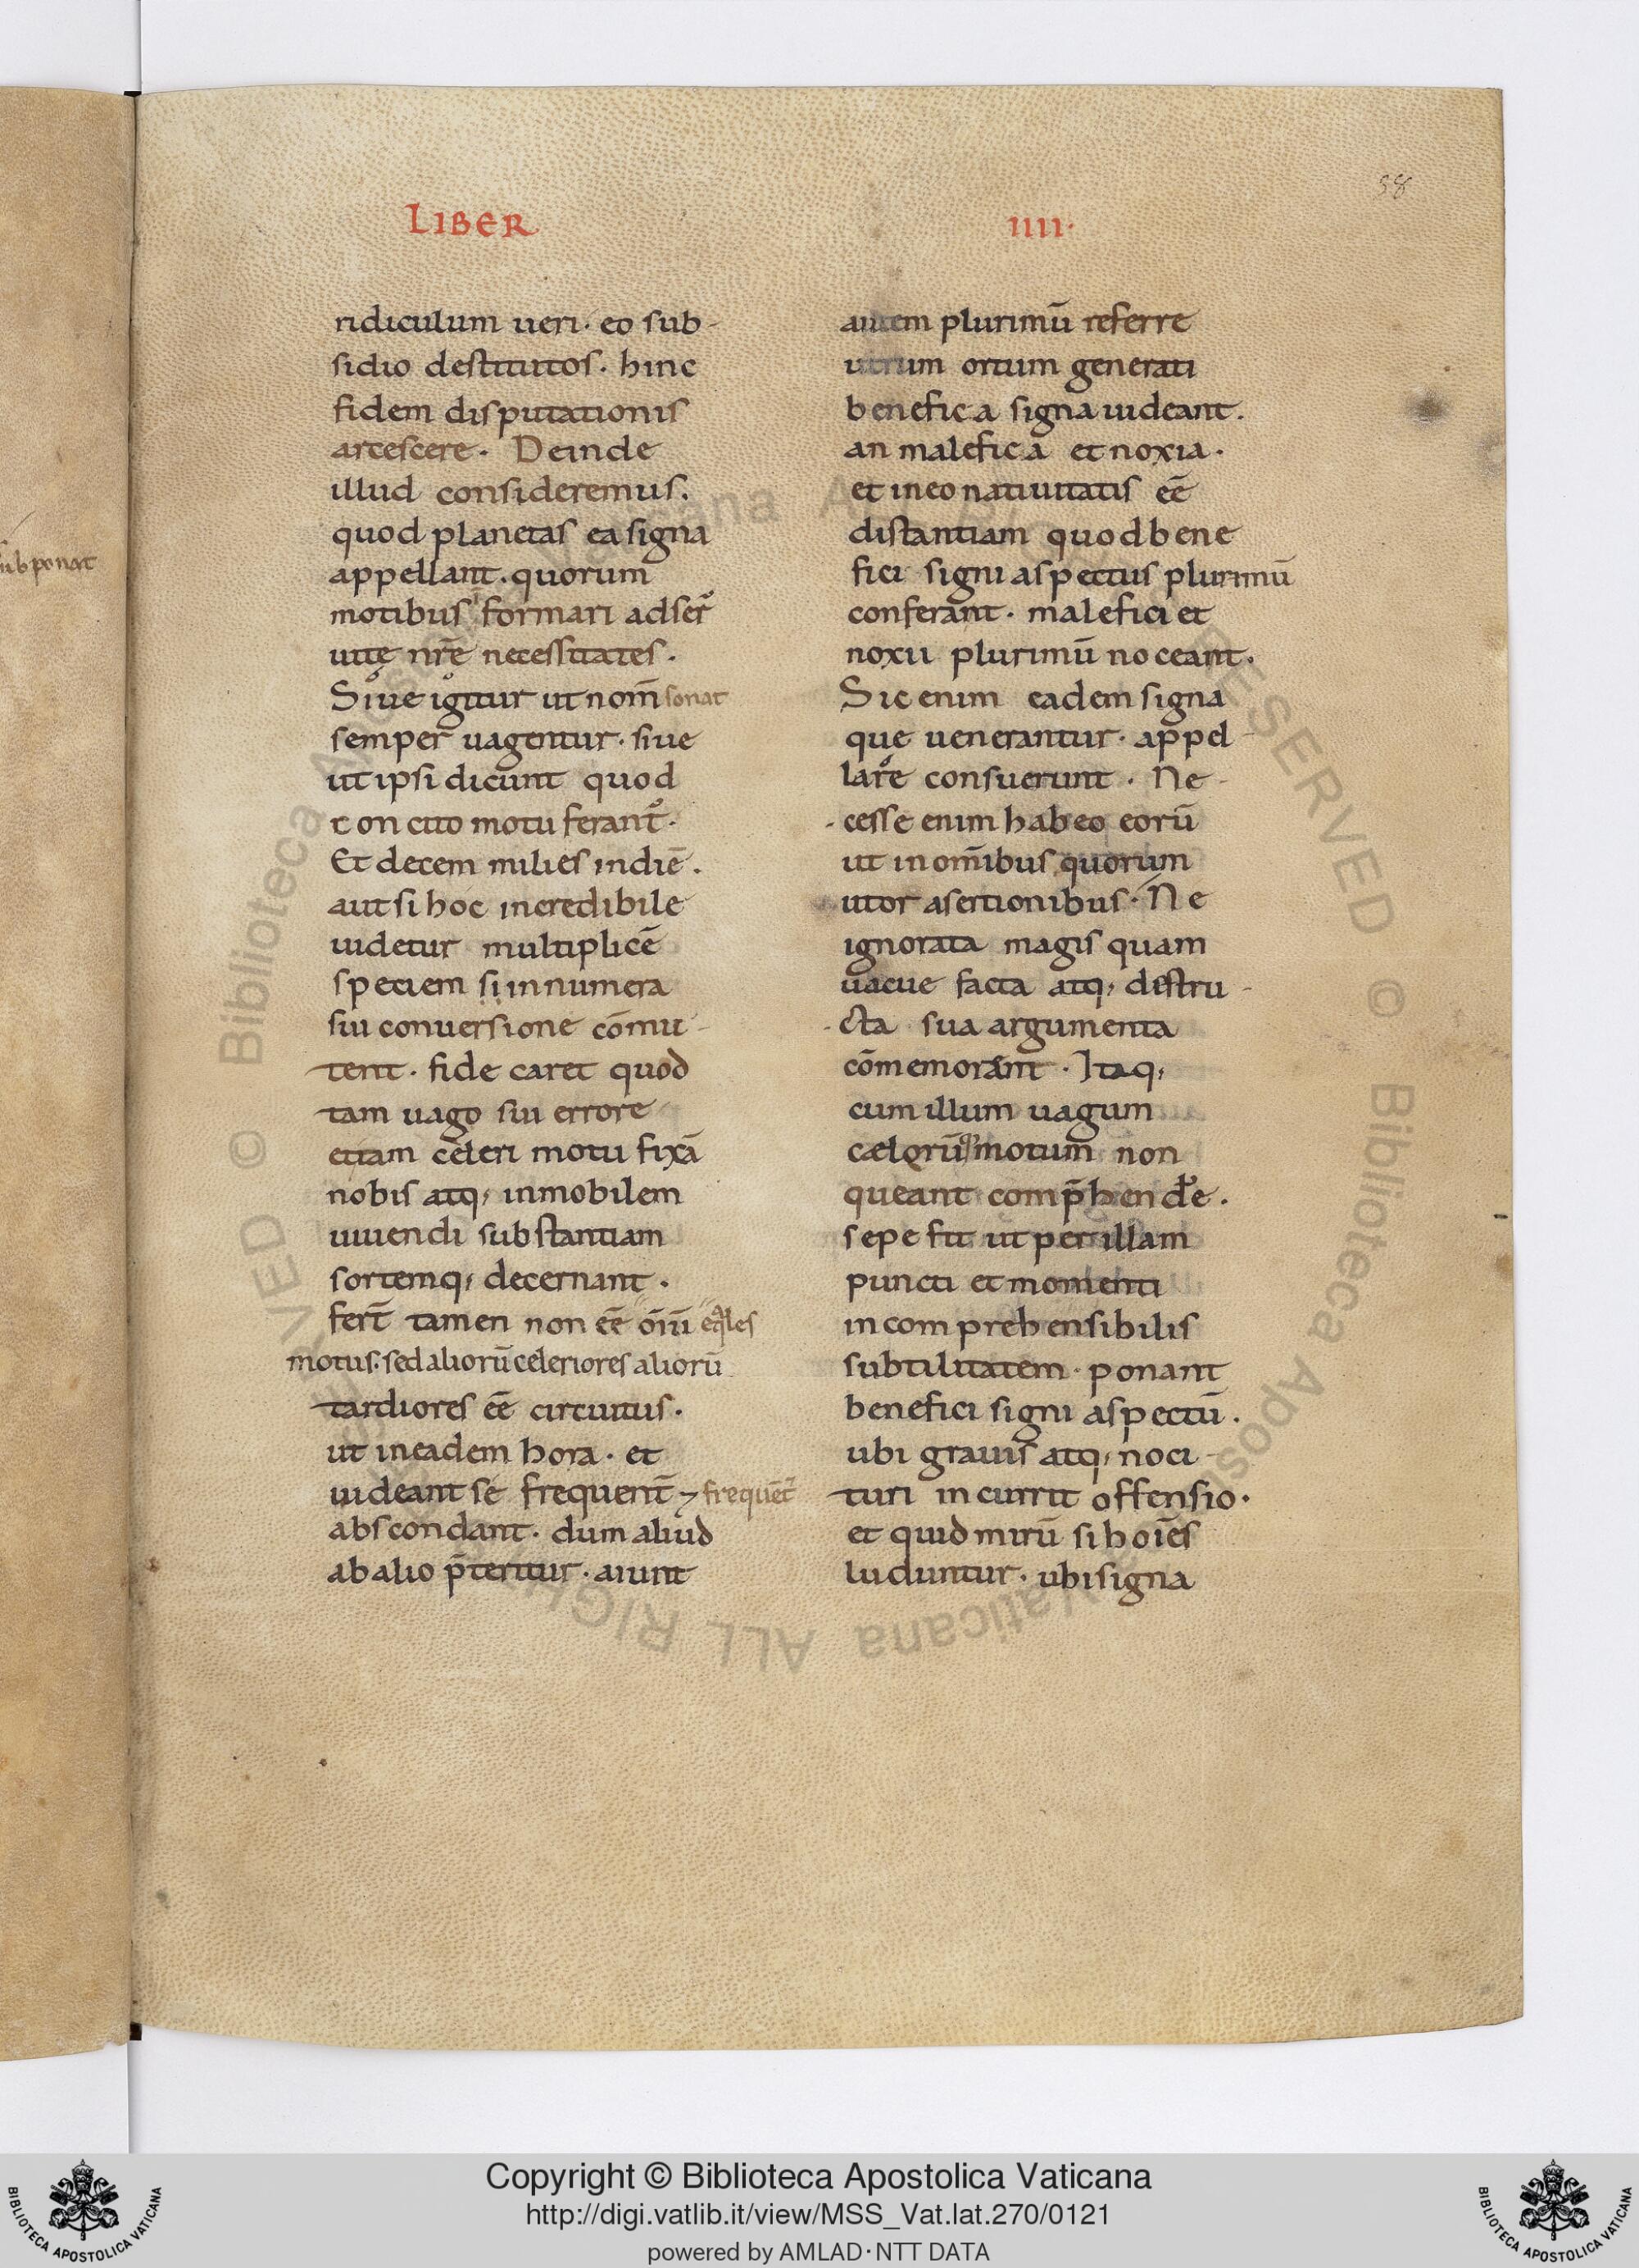 58
LIBER
IIII·
ridiculum ueri· eo sub-
sidio destitutos· hinc
fidem disputationis
arcescere· Deinde
illud consideremus·
quod planetas ea signa
appellant· quorum
motibus formari adser̃
uitę nr̄e necessitates·
Siue igitur ut nom̄ sonat
semper uagentur· siue
ut ipsi dicunt quod
con cito motu ferant̃·
Et decem milies in diē·
aut si hoc incredibile
uidetur multiplicē
speciem si innumera
siu conuersione cōmu-
tent· fide caret quod
tam uago siu errore
etiam celeri motu fixā
nobis atq; inmobilem
uiuendi substantiam
sortemq; decernant·
fert̄ tamen non eē oīū eq̄les
motus· sed aliorū celeriores aliorū
tardiores eē circuitus·
ut in eadem hora· et
uideant se frequent̄ frequēt̃
abscondant· dum aliud
ab alio p̄teritur· aiunt
autem plurimū referre
utrum ortum generati
benefica signa uideant·
an malefica et noxia·
et in eo natiuitatis eē
distantiam quod bene
fici signi aspectus plurimū
conferant· malefici et
noxii plurimū noceant·
Sic enim eadem signa
que uenerantur· appel-
lare consuerunt· Ne-
cesse enim habeo eorū
ut in om̄ibus quorum
utor asertionibus· Ne
ignorata magis quam
uacue facta atq; destru-
cta sua argumenta
cōmemorant· Itaq;
cum illum uagum
cælorū motum non
queant comp̄hendẽ·
sepe fit ut per illam
puncti et momenti
incomprehensibilis
subtilitatem· ponant
benefici signi aspectū·
ubi grauis atq; noci-
turi incurrit offensio·
et quid mirū si hoīes
luduntur· ubi signa
subponat
Copyright © Biblioteca Apostolica Vaticana
http://digi.vatlib.it/view/MSS_Vat.lat.270/0121
powered by AMLAD·NTT DATA
BIBLIOTECA APOSTOLICA VATICANA
BIBLIOTECA APOSTOLICA VATICANA